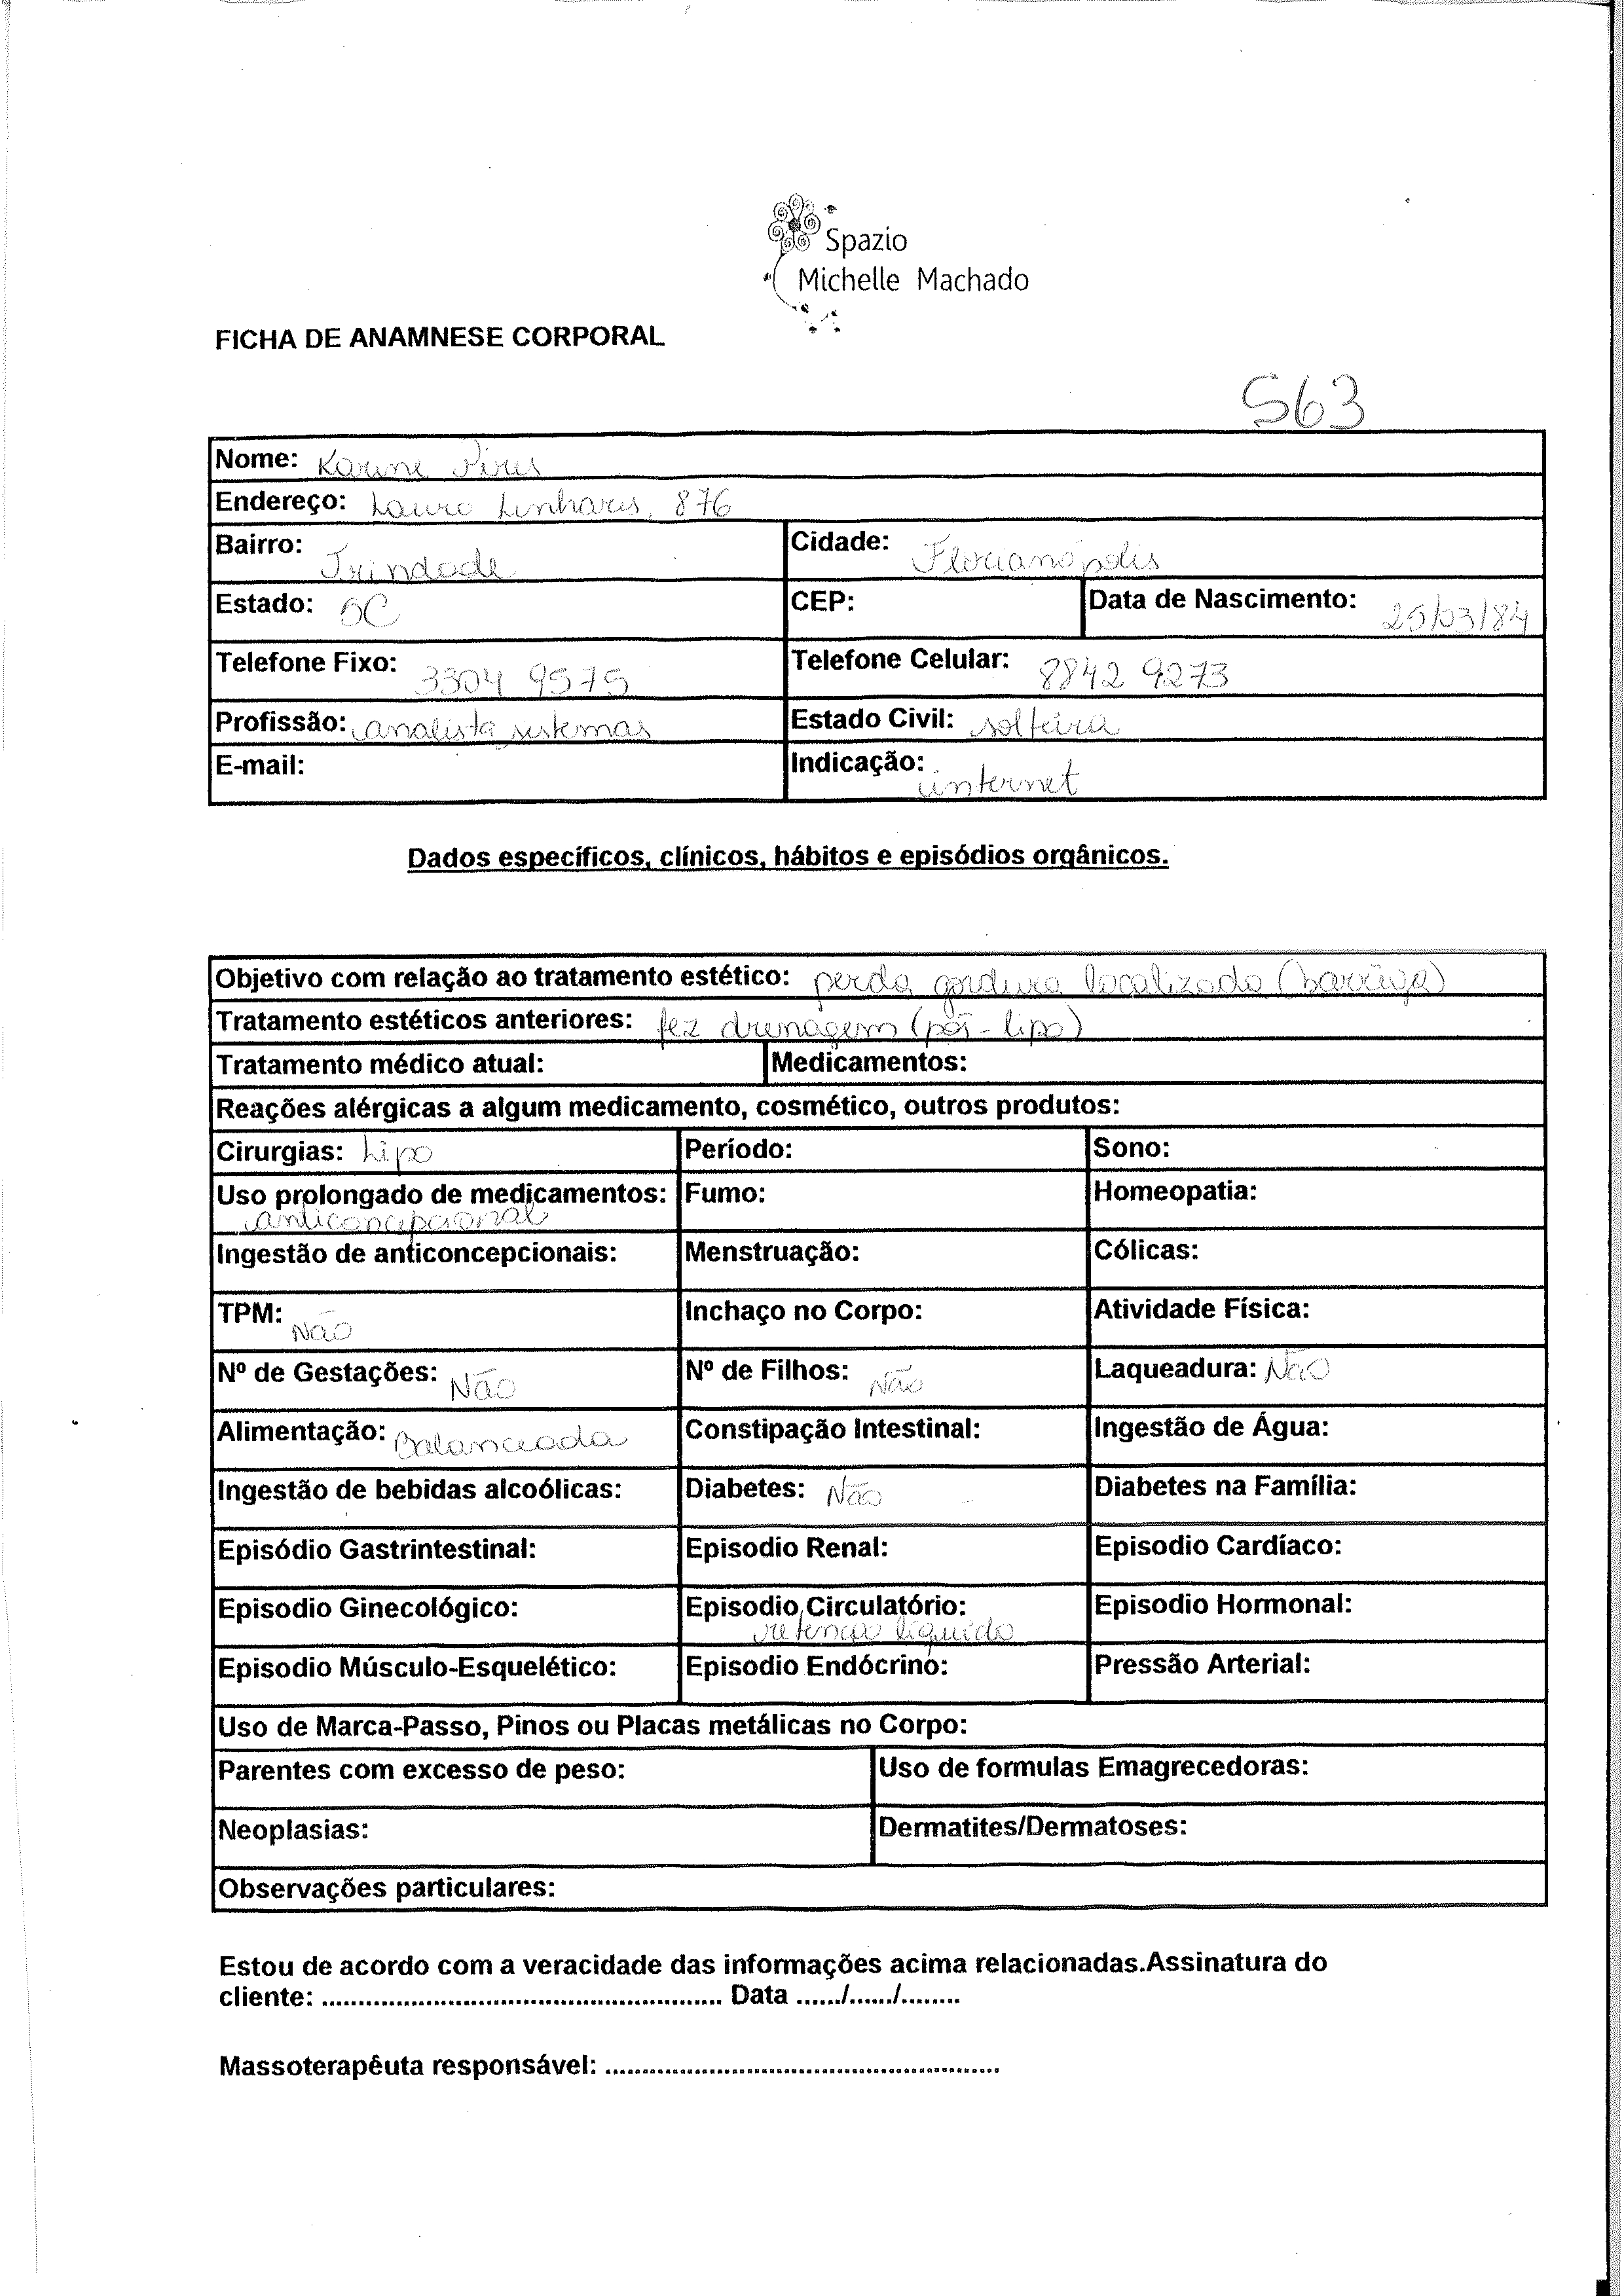 Spazio
Michelle Machado
FICHA DE ANAMNESE CORPORAL
563
Nome: Karine Pires
Endereço: Lauro Linhares, 876
Bairro: Trindade Cidade: Florianópolis
Estado: SC CEP: Data de Nascimento: 25/03/84
Telefone Fixo: 3304 9575 Telefone Celular: 8842 9273
Profissão: analista sistemas Estado Civil: solteira
E-mail: Indicação: internet
Dados específicos, clínicos, hábitos e episódios orgânicos.
Objetivo com relação ao tratamento estético: perda gordura localizada (barriga)
Tratamento estéticos anteriores: fez drenagem (pós-lipo)
Tratamento médico atual: Medicamentos:
Reações alérgicas a algum medicamento, cosmético, outros produtos:
Cirurgias: Lipo Período: Sono:
Uso prolongado de medicamentos: Fumo: Homeopatia:
anticoncepcional
Ingestão de anticoncepcionais: Menstruação: Cólicas:
TPM: Não Inchaço no Corpo: Atividade Física:
Nº de Gestações: Não Nº de Filhos: Não Laqueadura: Não
Alimentação: Balanceada Constipação Intestinal: Ingestão de Água:
Ingestão de bebidas alcoólicas: Diabetes: Não Diabetes na Família:
Episódio Gastrintestinal: Episodio Renal: Episodio Cardíaco:
Episodio Ginecológico: Episodio Circulatório: Episodio Hormonal:
retenção líquido
Episodio Músculo-Esquelético: Episodio Endócrino: Pressão Arterial:
Uso de Marca-Passo, Pinos ou Placas metálicas no Corpo:
Parentes com excesso de peso: Uso de formulas Emagrecedoras:
Neoplasias: Dermatites/Dermatoses:
Observações particulares:
Estou de acordo com a veracidade das informações acima relacionadas.Assinatura do
cliente: ...................................................... Data ....../....../........
Massoterapêuta responsável: .....................................................